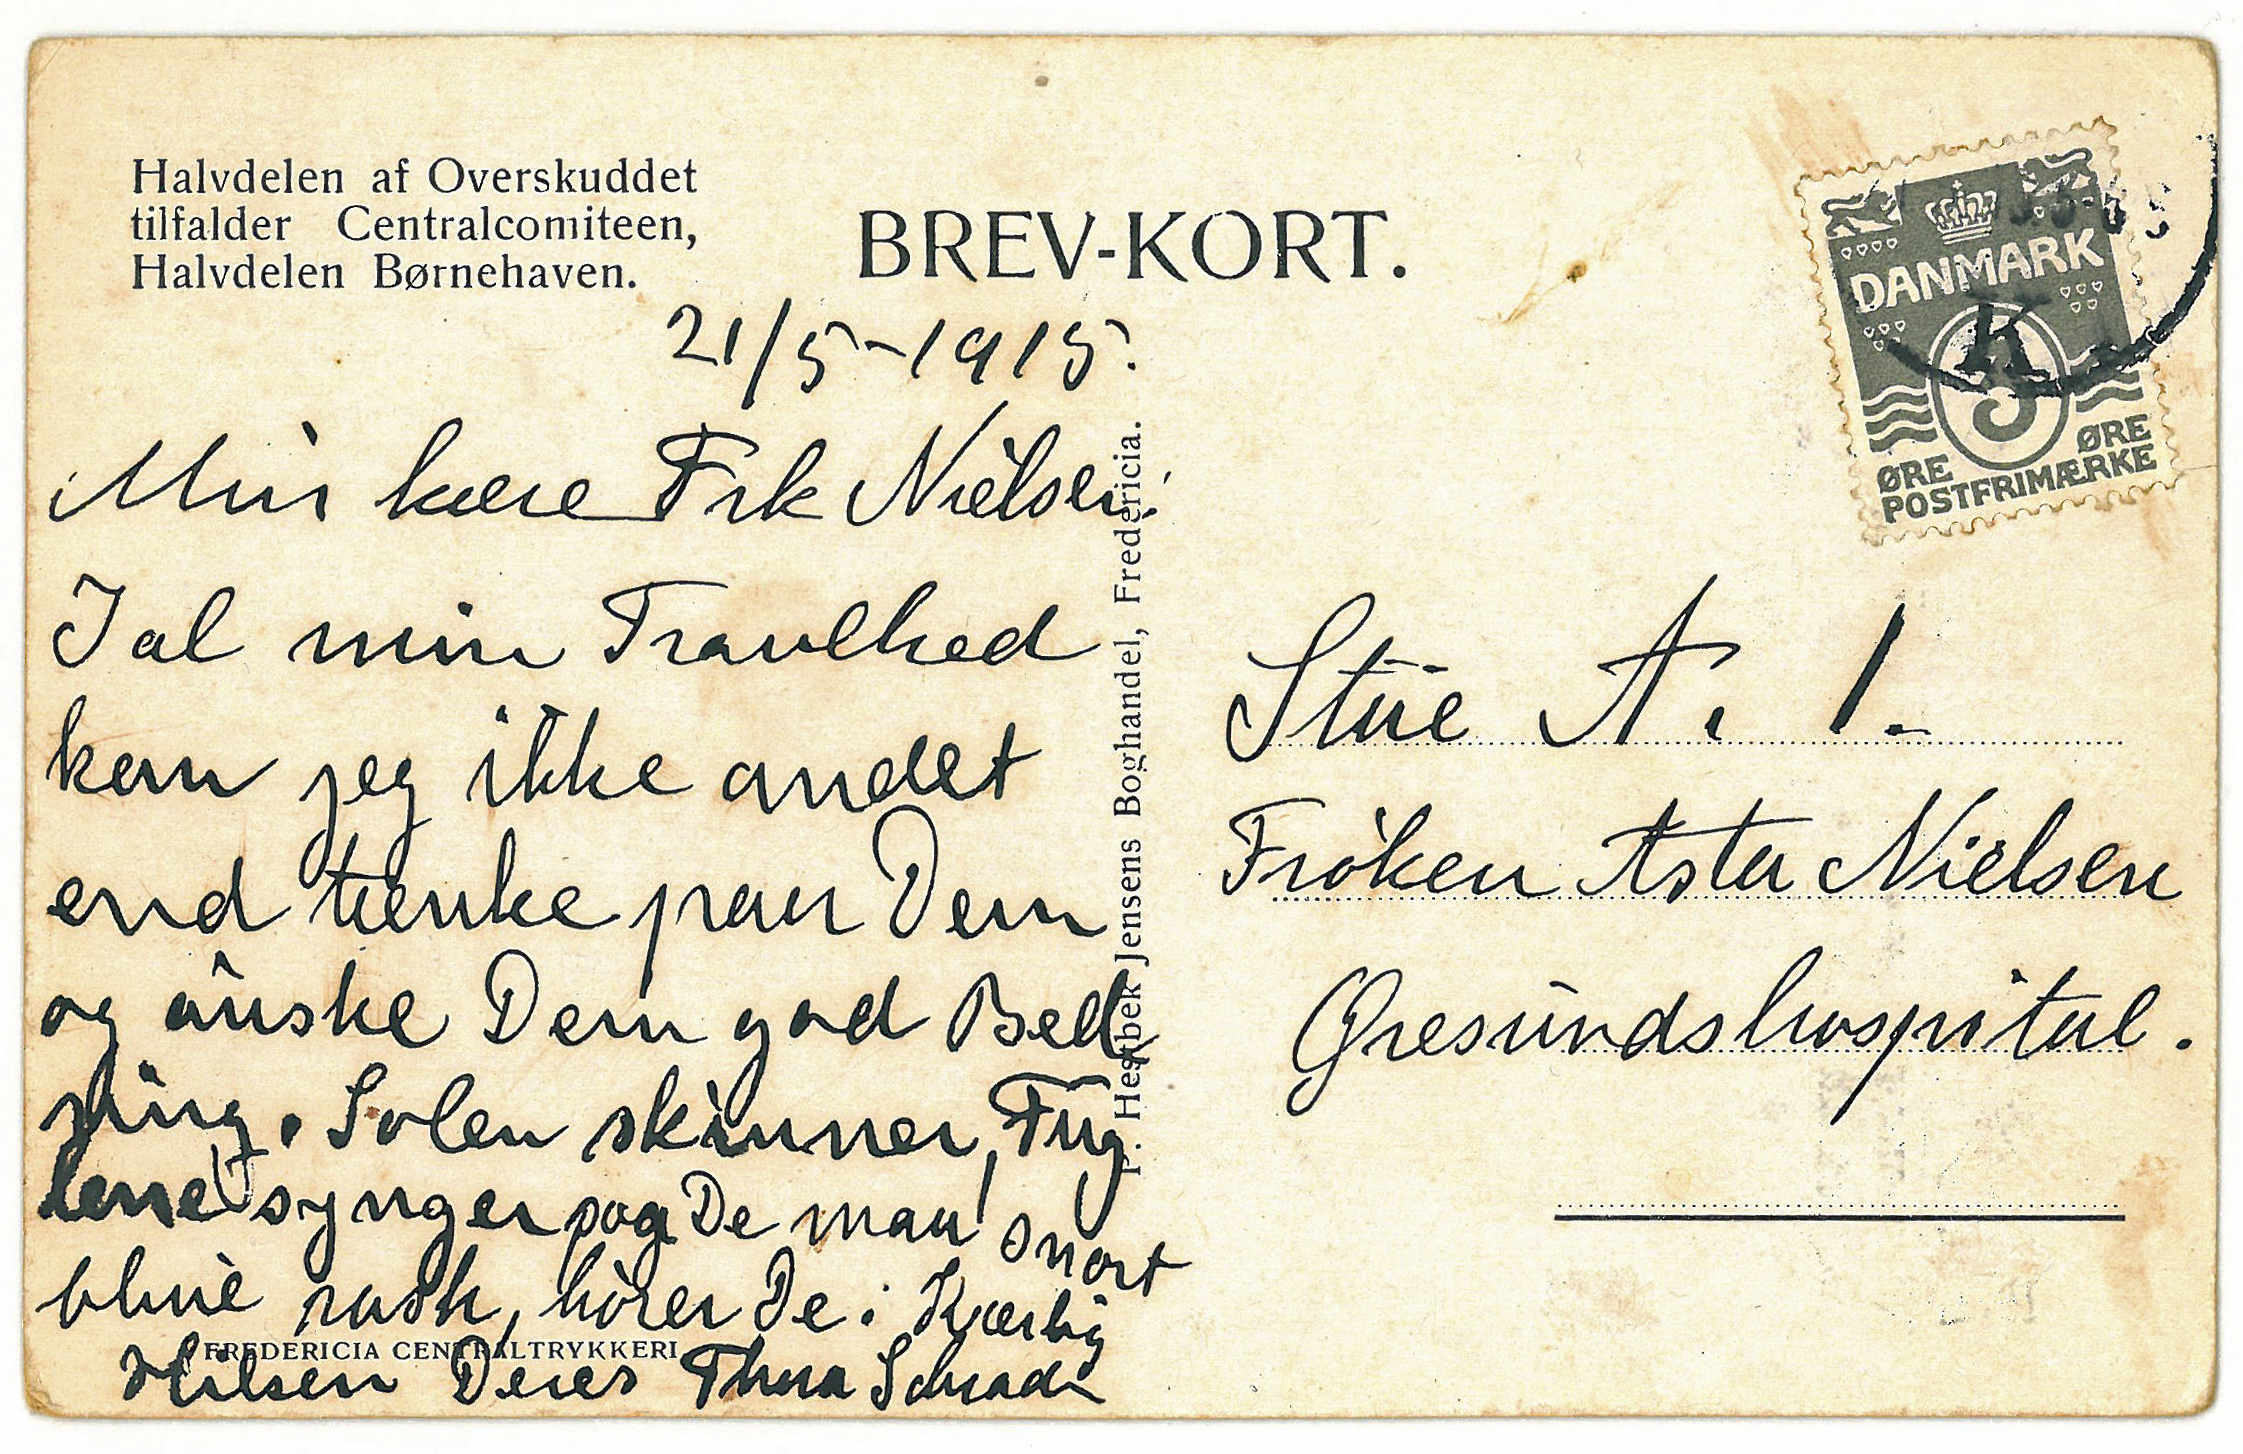 Halvdelen af Overskuddet
tilfalder Centralcomiteen,
Halvdelen Børnehaven.
BREV-KORT.
21/5-1915.
Min kære Frk Nielsen!
I al min Travlhed
kan jeg ikke andet
end tænke paa Dem
og ønske Dem god Bed
ring. Solen skinner, Fug
lene synger og De maa snart
blive rask, hører De! Kærlig
Hilsen Deres Thora
FREDERICIA CENTRALTRYKKERI
P. Hestbek Jensens Boghandel, Fredericia.
DANMARK
K
3
ØRE ØRE
POSTFRIMÆRKE
Stue A. 1.
Frøken Asta Nielsen
Øresundshospital.